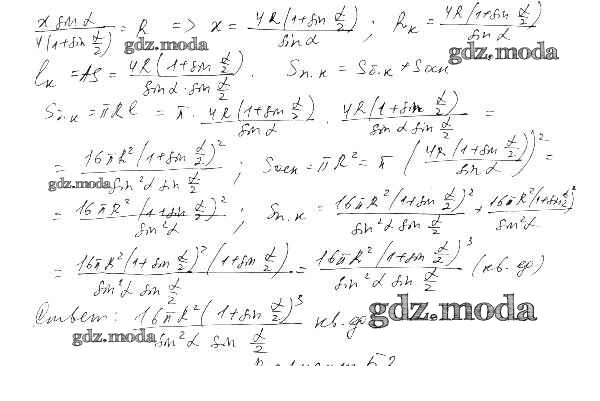 x sin α / 4(1+sin α/2) = R => x = 4R(1+sin α/2) / sin α ; Rк = 4R(1+sin α/2) / sin α
gdz.moda gdz.moda
lк = AS = 4R(1+sin α/2) / sin α · sin α/2 . Sп.к = Sб.к + Sосн
Sб.к = πRl = π · 4R(1+sin α/2) / sin α · 4R(1+sin α/2) / sin α sin α/2 =
= 16πR²(1+sin α/2)² / sin²α sin α/2 ; Sосн = πR² = π (4R(1+sin α/2) / sin α)² =
gdz.moda
= 16πR²(1+sin α/2)² / sin²α ; Sп.к = 16πR²(1+sin α/2)² / sin²α sin α/2 + 16πR²(1+sin α/2)² / sin²α
= 16πR²(1+sin α/2)²(1+sin α/2) / sin²α sin α/2 = 16πR²(1+sin α/2)³ / sin²α sin α/2 (кв. ед)
Ответ: 16πR²(1+sin α/2)³ / sin²α sin α/2 кв. ед.
gdz.moda gdz.moda